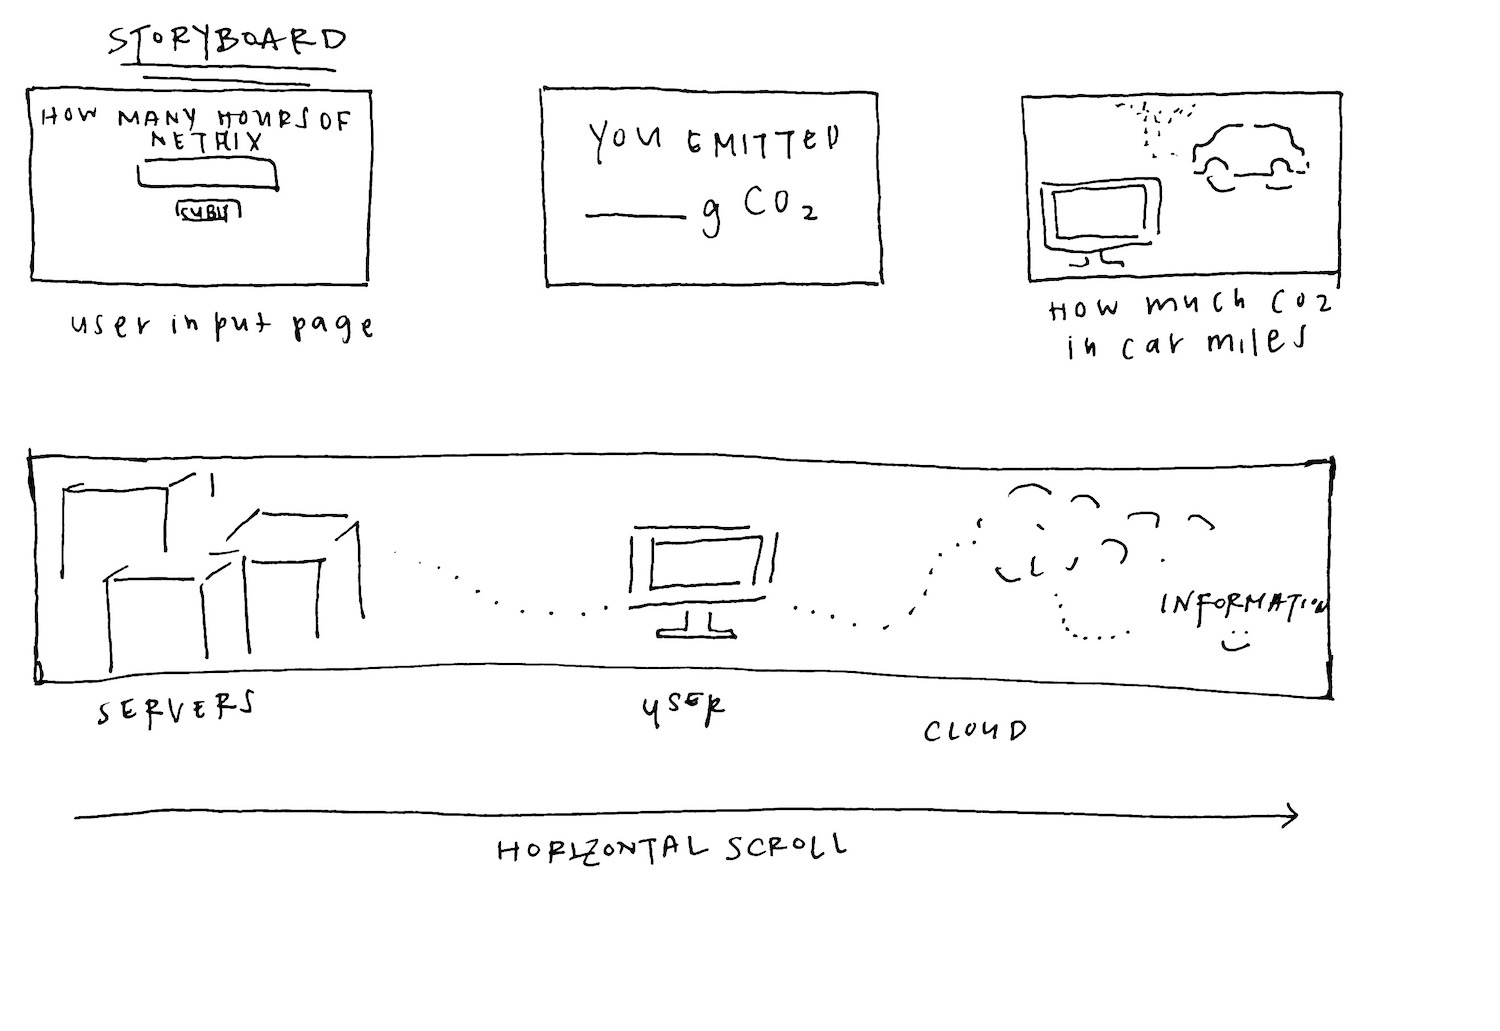 STORYBOARD
HOW MANY HOURS OF
NETFLIX
SUBM
user input page
YOU EMITTED
____ g CO2
HOW much CO2
in car miles
INFORMATION
SERVERS
USER
CLOUD
HORIZONTAL SCROLL